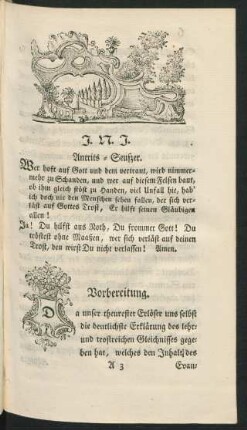 J. N. J.
Antrits-Seufzer.
Wer hoft auf Gott und dem vertraut, wird nimmer-
mehr zu Schanden, und wer auf diesem Felsen baut,
ob ihm gleich stöst zu Handen, viel Unfall hie, hab'
ich doch nie den Menschen sehen fallen, der sich ver-
läst auf Gottes Trost, Er hilft seinen Gläubigen
allen!
Ja! Du hilfst aus Noth, Du frommer Gott! Du
tröstest ohne Maaßen, wer sich verläst auf deinen
Trost, den wirst Du nicht verlassen! Amen.
Vorbereitung.
Da unser theurester Erlöser uns selbst
die deutlichste Erklärung des lehr-
und trostreichen Gleichnisses gege-
ben hat, welches den Inhalt des
A 3
Evan-